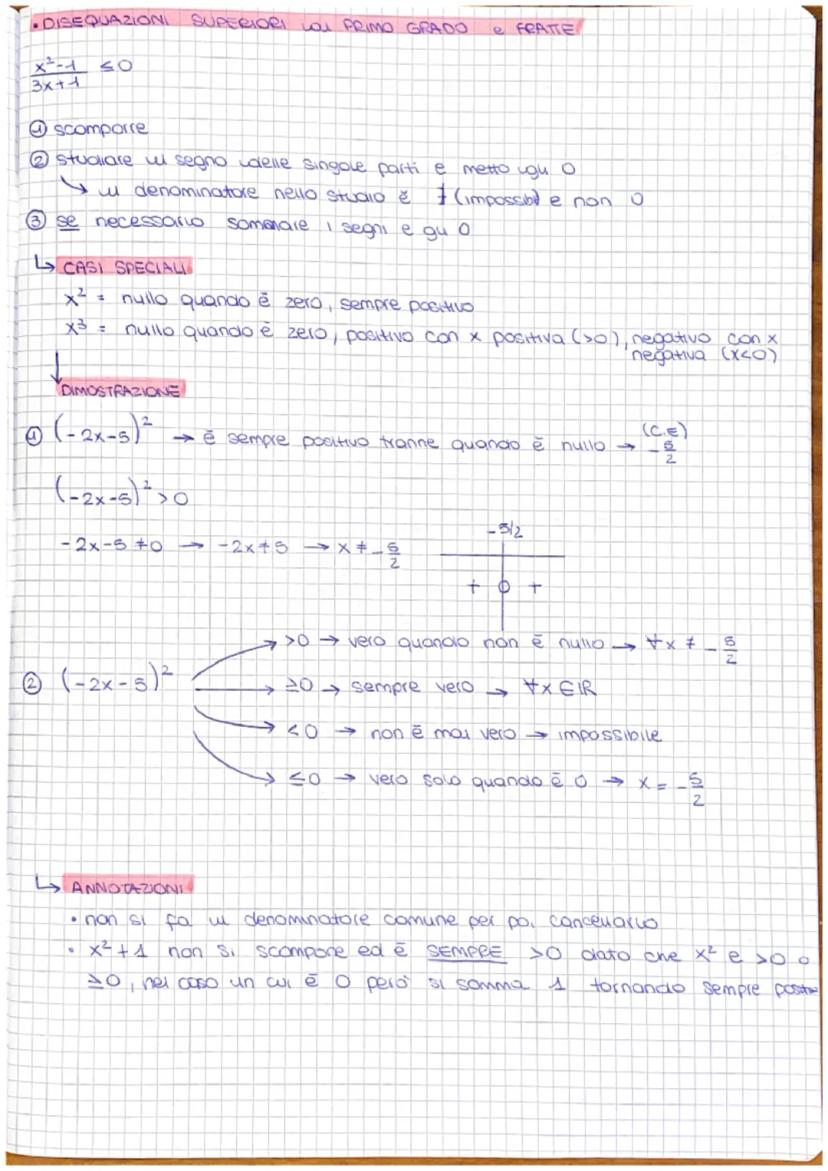 • DISEQUAZIONI SUPERIORI al PRIMO GRADO e FRATTE
x²-1 / 3x+1 ≤0
① scomporre
② studiare il segno delle singole parti e metto gli 0
↳ il denominatore nello studio è ∄ (impossibil e non 0
③ se necessario sommare i segni e gli 0
↳ CASI SPECIALI
x² = nullo quando è zero, sempre positivo
x³ = nullo quando è zero, positivo con x positiva (>0), negativo con x
negativa (x<0)
↓
DIMOSTRAZIONE
① (-2x-5)² → è sempre positivo tranne quando è nullo → (C.E) -5/2
(-2x-5)² >0
-2x-5 ≠0 → -2x≠5 → x ≠ -5/2
-5/2
+ 0 +
② (-2x-5)²
→ >0 → vero quando non è nullo → ∀x ≠ -5/2
→ ≥0 → sempre vero → ∀x ∈ IR
→ <0 → non è mai vero → impossibile
→ ≤0 → vero solo quando è 0 → x = -5/2
↳ ANNOTAZIONI
• non si fa il denominatore comune per poi cancellarlo
• x²+1 non si scompone ed è SEMPRE >0 dato che x² e >0 o
≥0, nel caso un cui è 0 però si somma 1 tornando sempre positivo